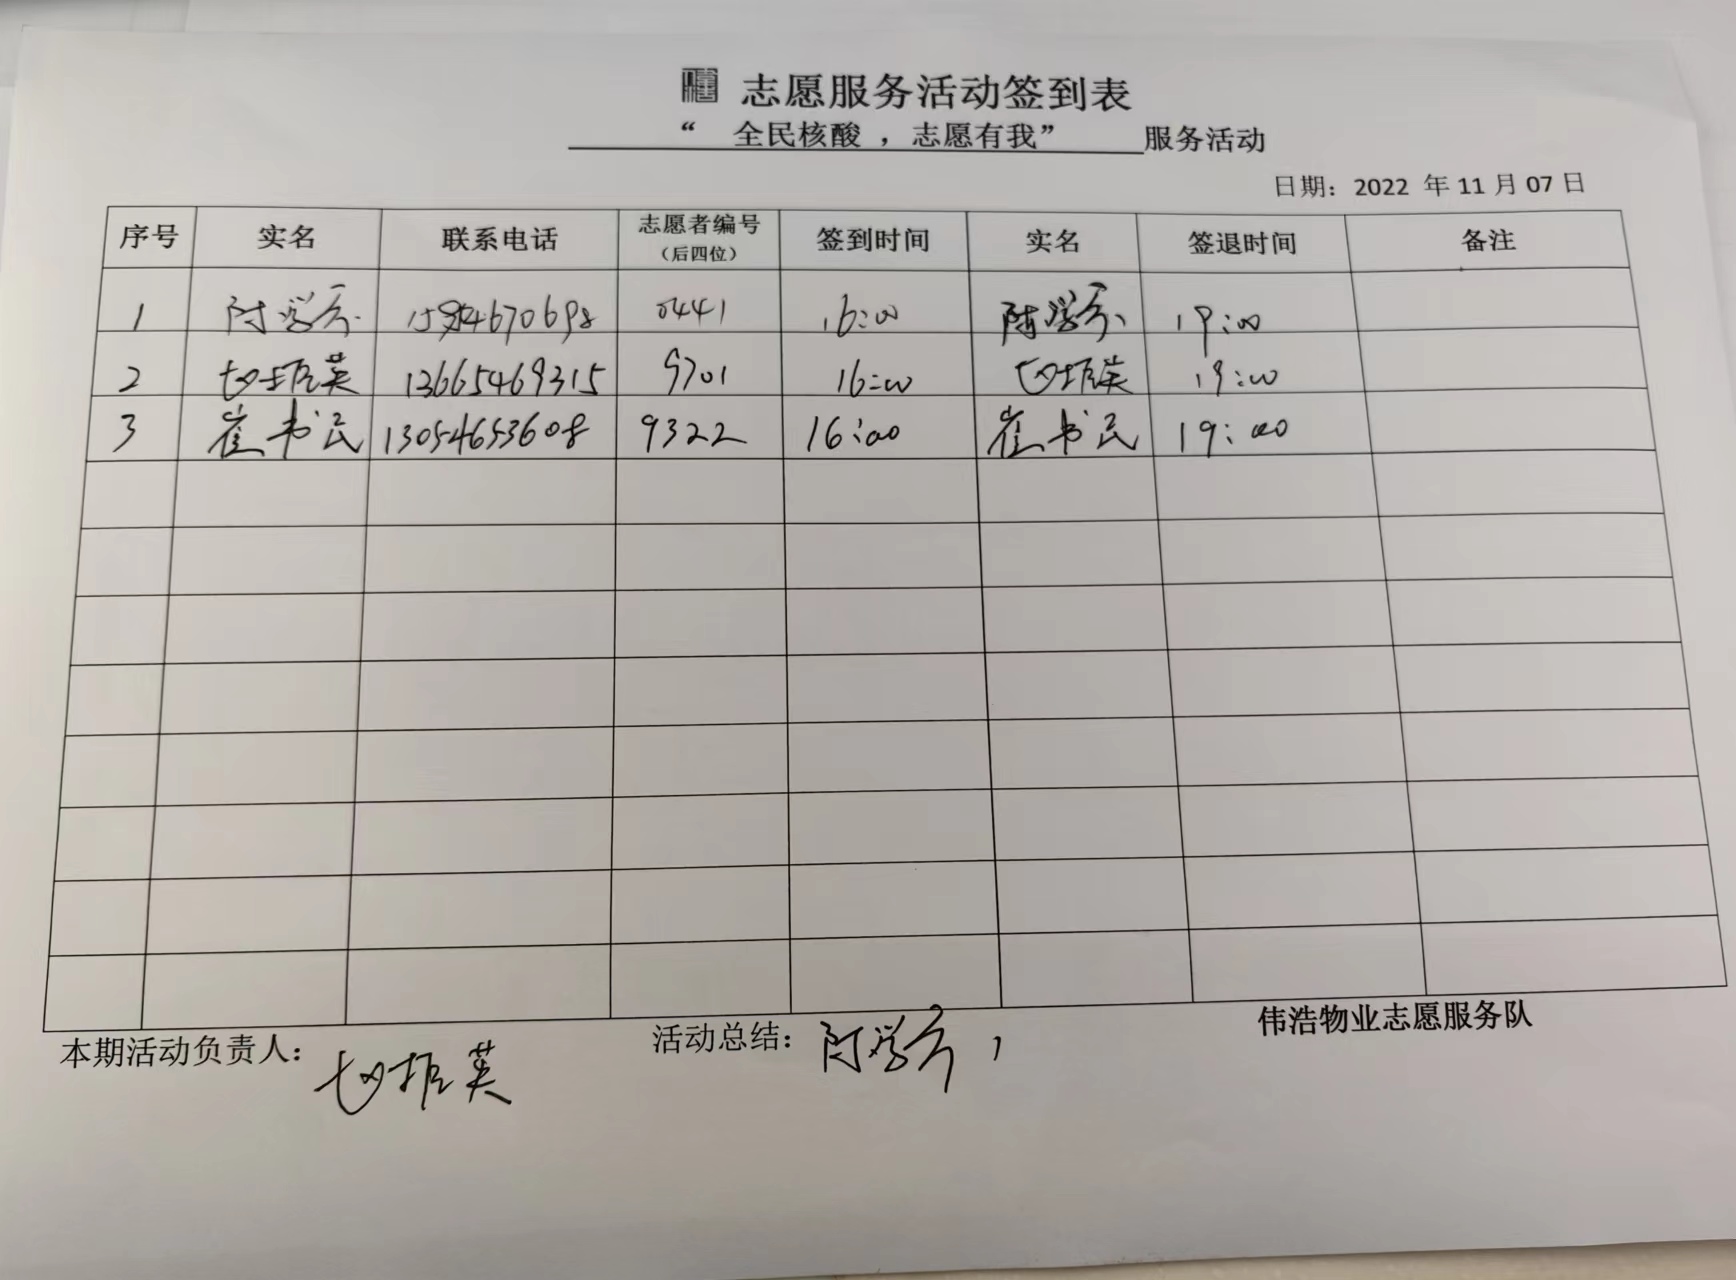 志愿服务活动签到表
“ 全民核酸 ，志愿有我” 服务活动
日期：2022 年 11 月 07 日
序号 实名 联系电话 志愿者编号（后四位） 签到时间 实名 签退时间 备注
1 0441 16:00 19:00
2 13665469315 9701 16:00 19:00
3 崔书民 13054653608 9322 16:00 崔书民 19:00
本期活动负责人： 活动总结： 伟浩物业志愿服务队